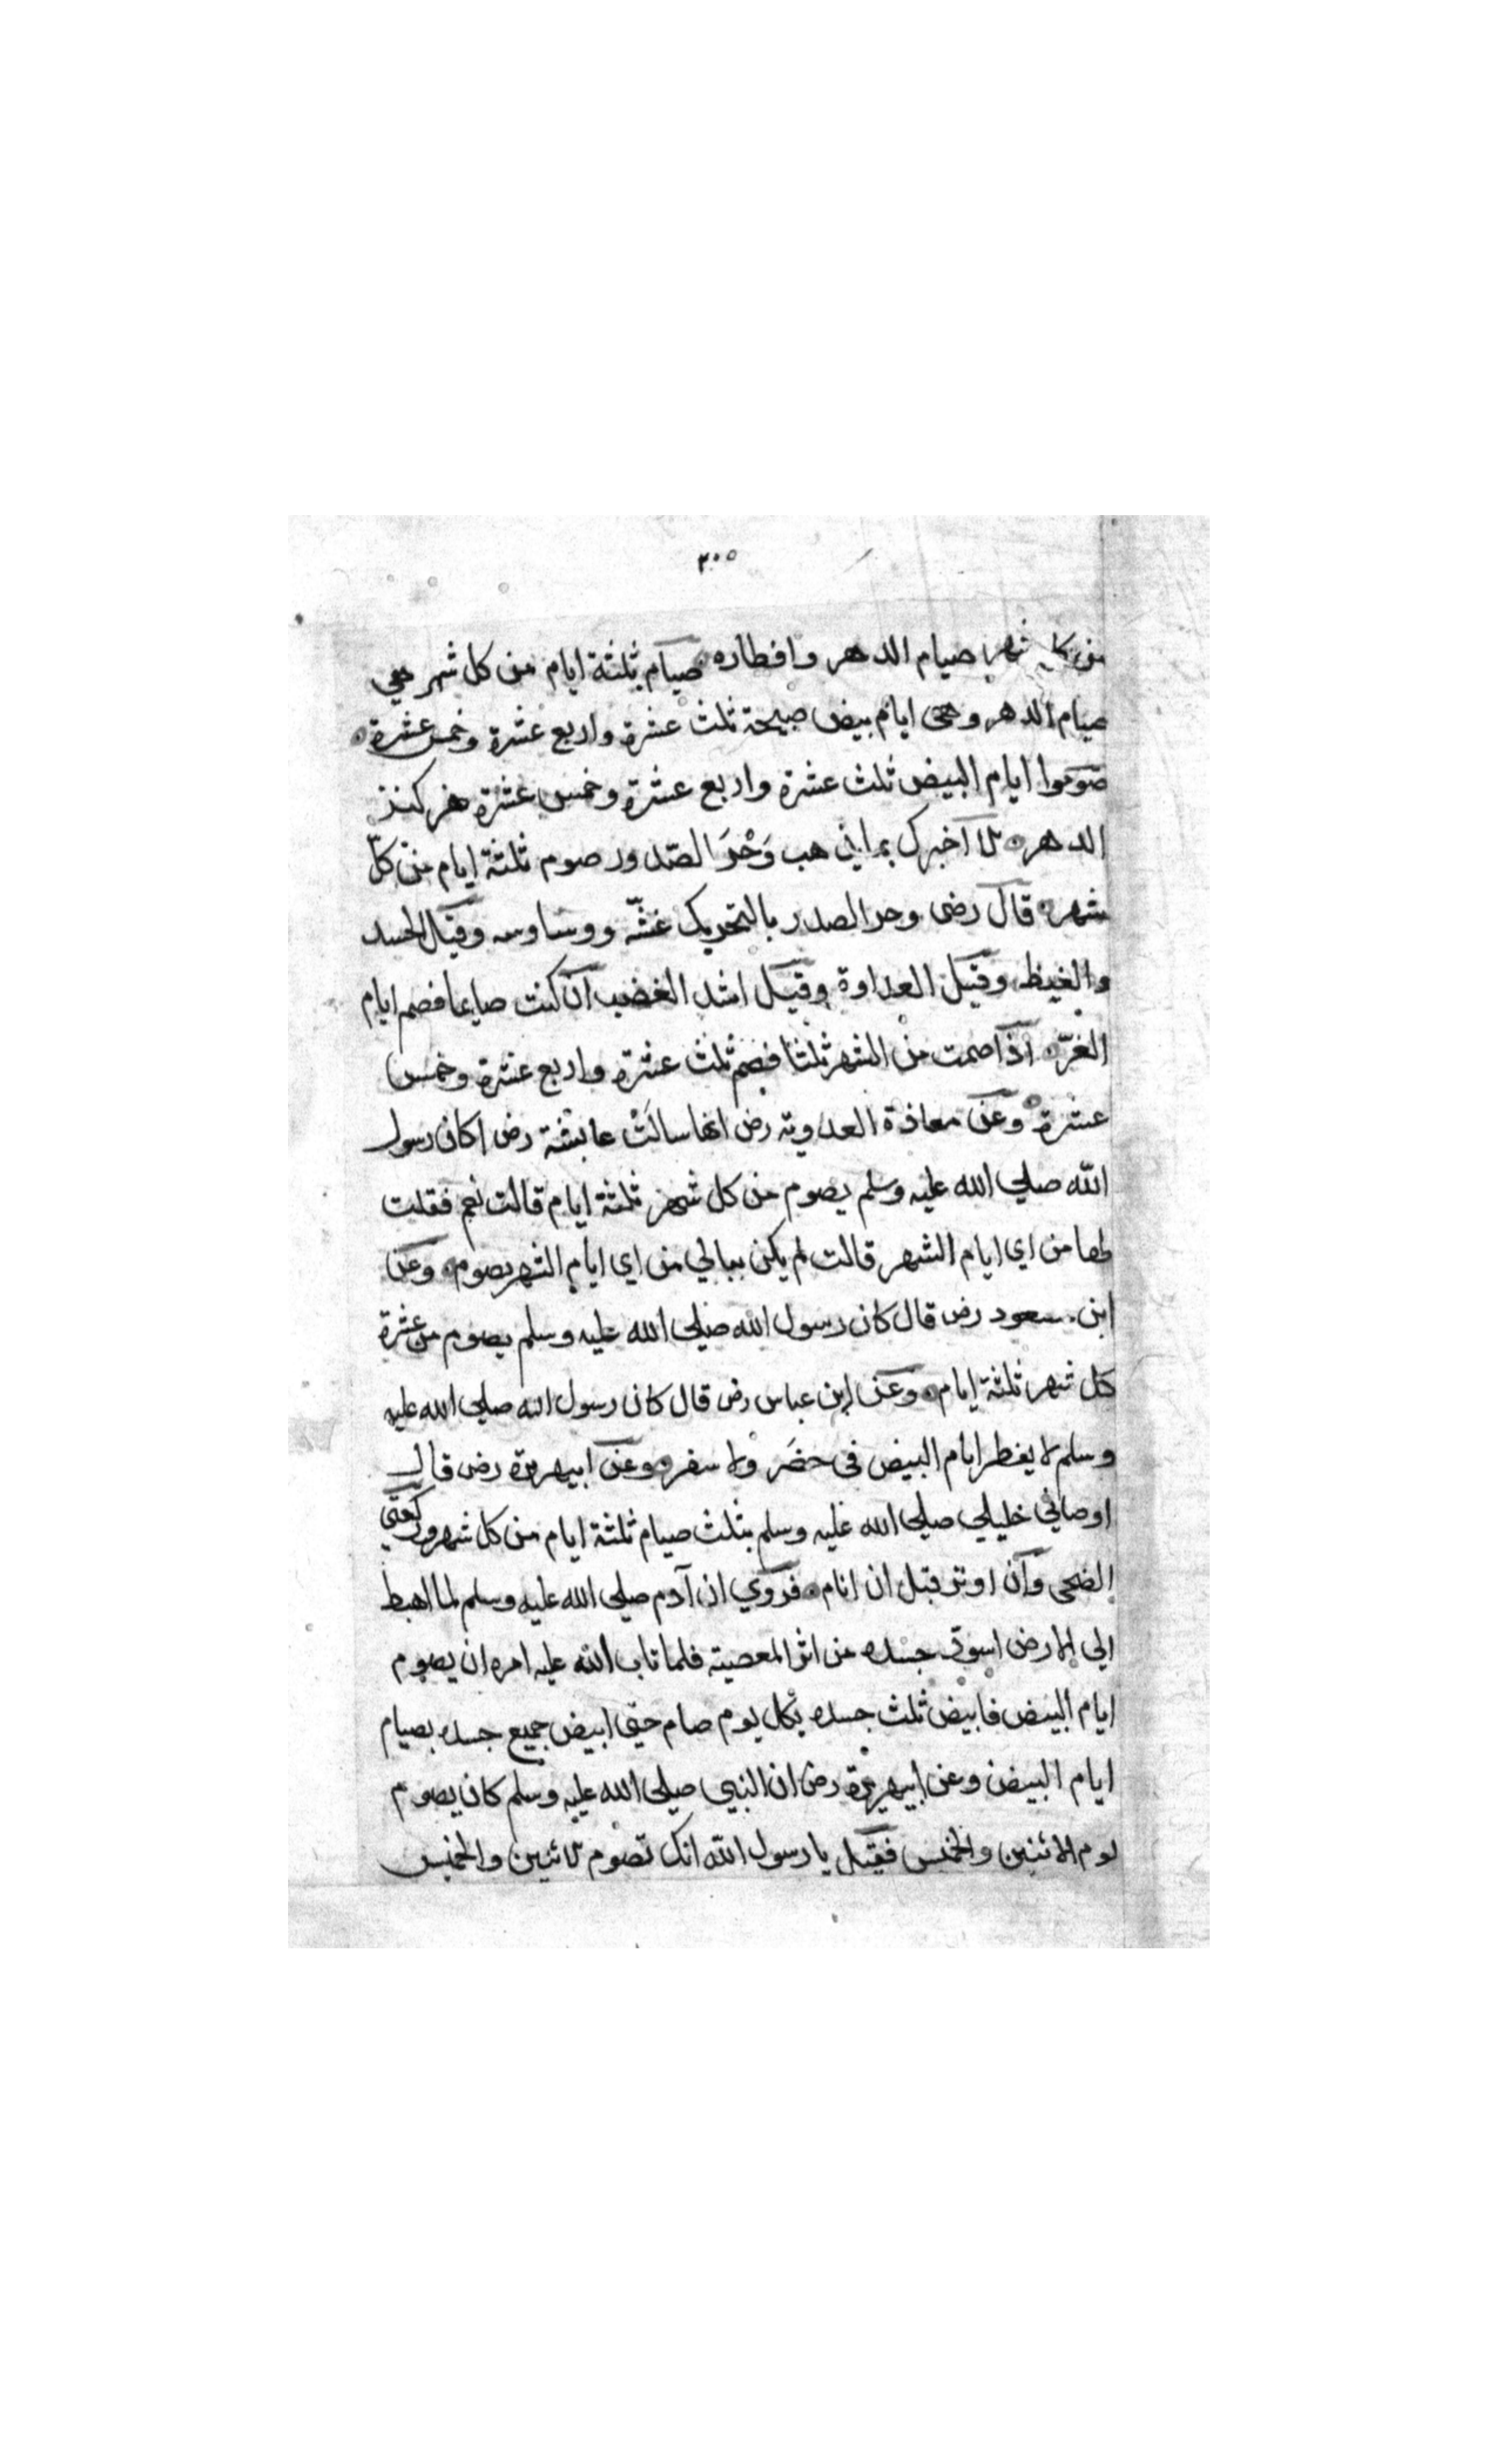 ٢٠٥
من كل شهر صيام الدهر وافطاره صيام ثلثة ايام من كل شهر هي
صيام الدهر وهى ايام بيض صبيحة ثلث عشرة واربع عشرة وخمس عشرة
صوموا ايام البيض ثلث عشرة واربع عشرة وخمس عشرة هن كنز
الدهر الا اخبرك بما يذهب وَحَرَ الصدور صوم ثلثة ايام من كلّ
شهر قال رضى وحر الصدر بالتحريك غشّه ووساوسه وقيل الحسد
والغيظ وقيل العداوة وقيل اشد الغضب ان كنت صايما فصم ايام
الغرّ اذا صمت من الشهر ثلثا فصم ثلث عشرة واربع عشرة وخمس
عشرة وعن معاذة العدوية رض انها سالَتْ عايشة رض اكان رسول
الله صلى الله عليه وسلم يصوم من كل شهر ثلثة ايام قالت نعم فقلت
لها من اي ايام الشهر قالت لم يكن يبالي من اي ايام الشهر يصوم وعن
ابن مسعود رض قال كان رسول الله صلى الله عليه وسلم يصوم من غرة
كل شهر ثلثة ايام وعن ابن عباس رض قال كان رسول الله صلى الله عليه
وسلم لا يفطر ايام البيض فى حضَر ولا سفر وعن ابيهريرة رض قال
اوصاني خليلي صلى الله عليه وسلم بثلث صيام ثلثة ايام من كل شهر وركعتي
الضحى وان اوتر قبل ان انام فروي ان آدم صلى الله عليه وسلم لما اهبط
الي الارض اسودّ جسده من اثر المعصية فلما تاب الله عليه امره ان يصوم
ايام البيض فابيض ثلث جسده بكل يوم صام حتى ابيض جميع جسده بصيام
ايام البيض وعن ابيهريرة رض ان النبي صلى الله عليه وسلم كان يصوم
يوم الاثنين والخميس فقيل يا رسول الله انك تصوم الاثنين والخميس